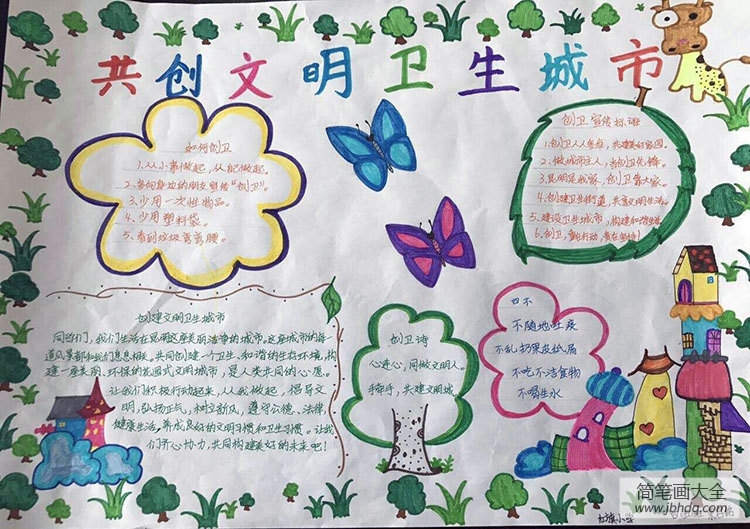 共创文明卫生城市
如何创卫
1、从小事做起，从我做起。
2、多向身边的朋友宣传“创卫”。
3、少用一次性物品。
4、少用塑料袋。
5、看到垃圾弯弯腰。
创卫宣传标语
1、创卫人人参与，共建美好家园。
2、做城市主人，当创卫先锋。
3、昆明是我家，创卫靠大家。
4、创建卫生街道，共享文明生活。
5、建设卫生城市，构建和谐生活
6、创卫，重在行动，贵在坚持！
创建文明卫生城市
同学们，我们生活在昆明这座美丽洁净的城市，这座城市的每一
道风景都和我们息息相关，共同创建一个卫生、和谐的生存环境，构
建一座美丽、环保的花园式文明城市，是人类共同的心愿。
让我们积极行动起来，从我做起，倡导文
明，弘扬正气，和歪新风，遵守公德、法律，
健康生活，养成良好的文明习惯和卫生习惯。让我
们齐心协力，共同构建美好的未来吧！
创卫诗
心连心，同做文明人。
手牵手，共建文明城。
四不
不随地吐痰
不乱扔果皮纸屑
不吃不洁食物
不喝生水
简笔画大全
www.jbhdq.com